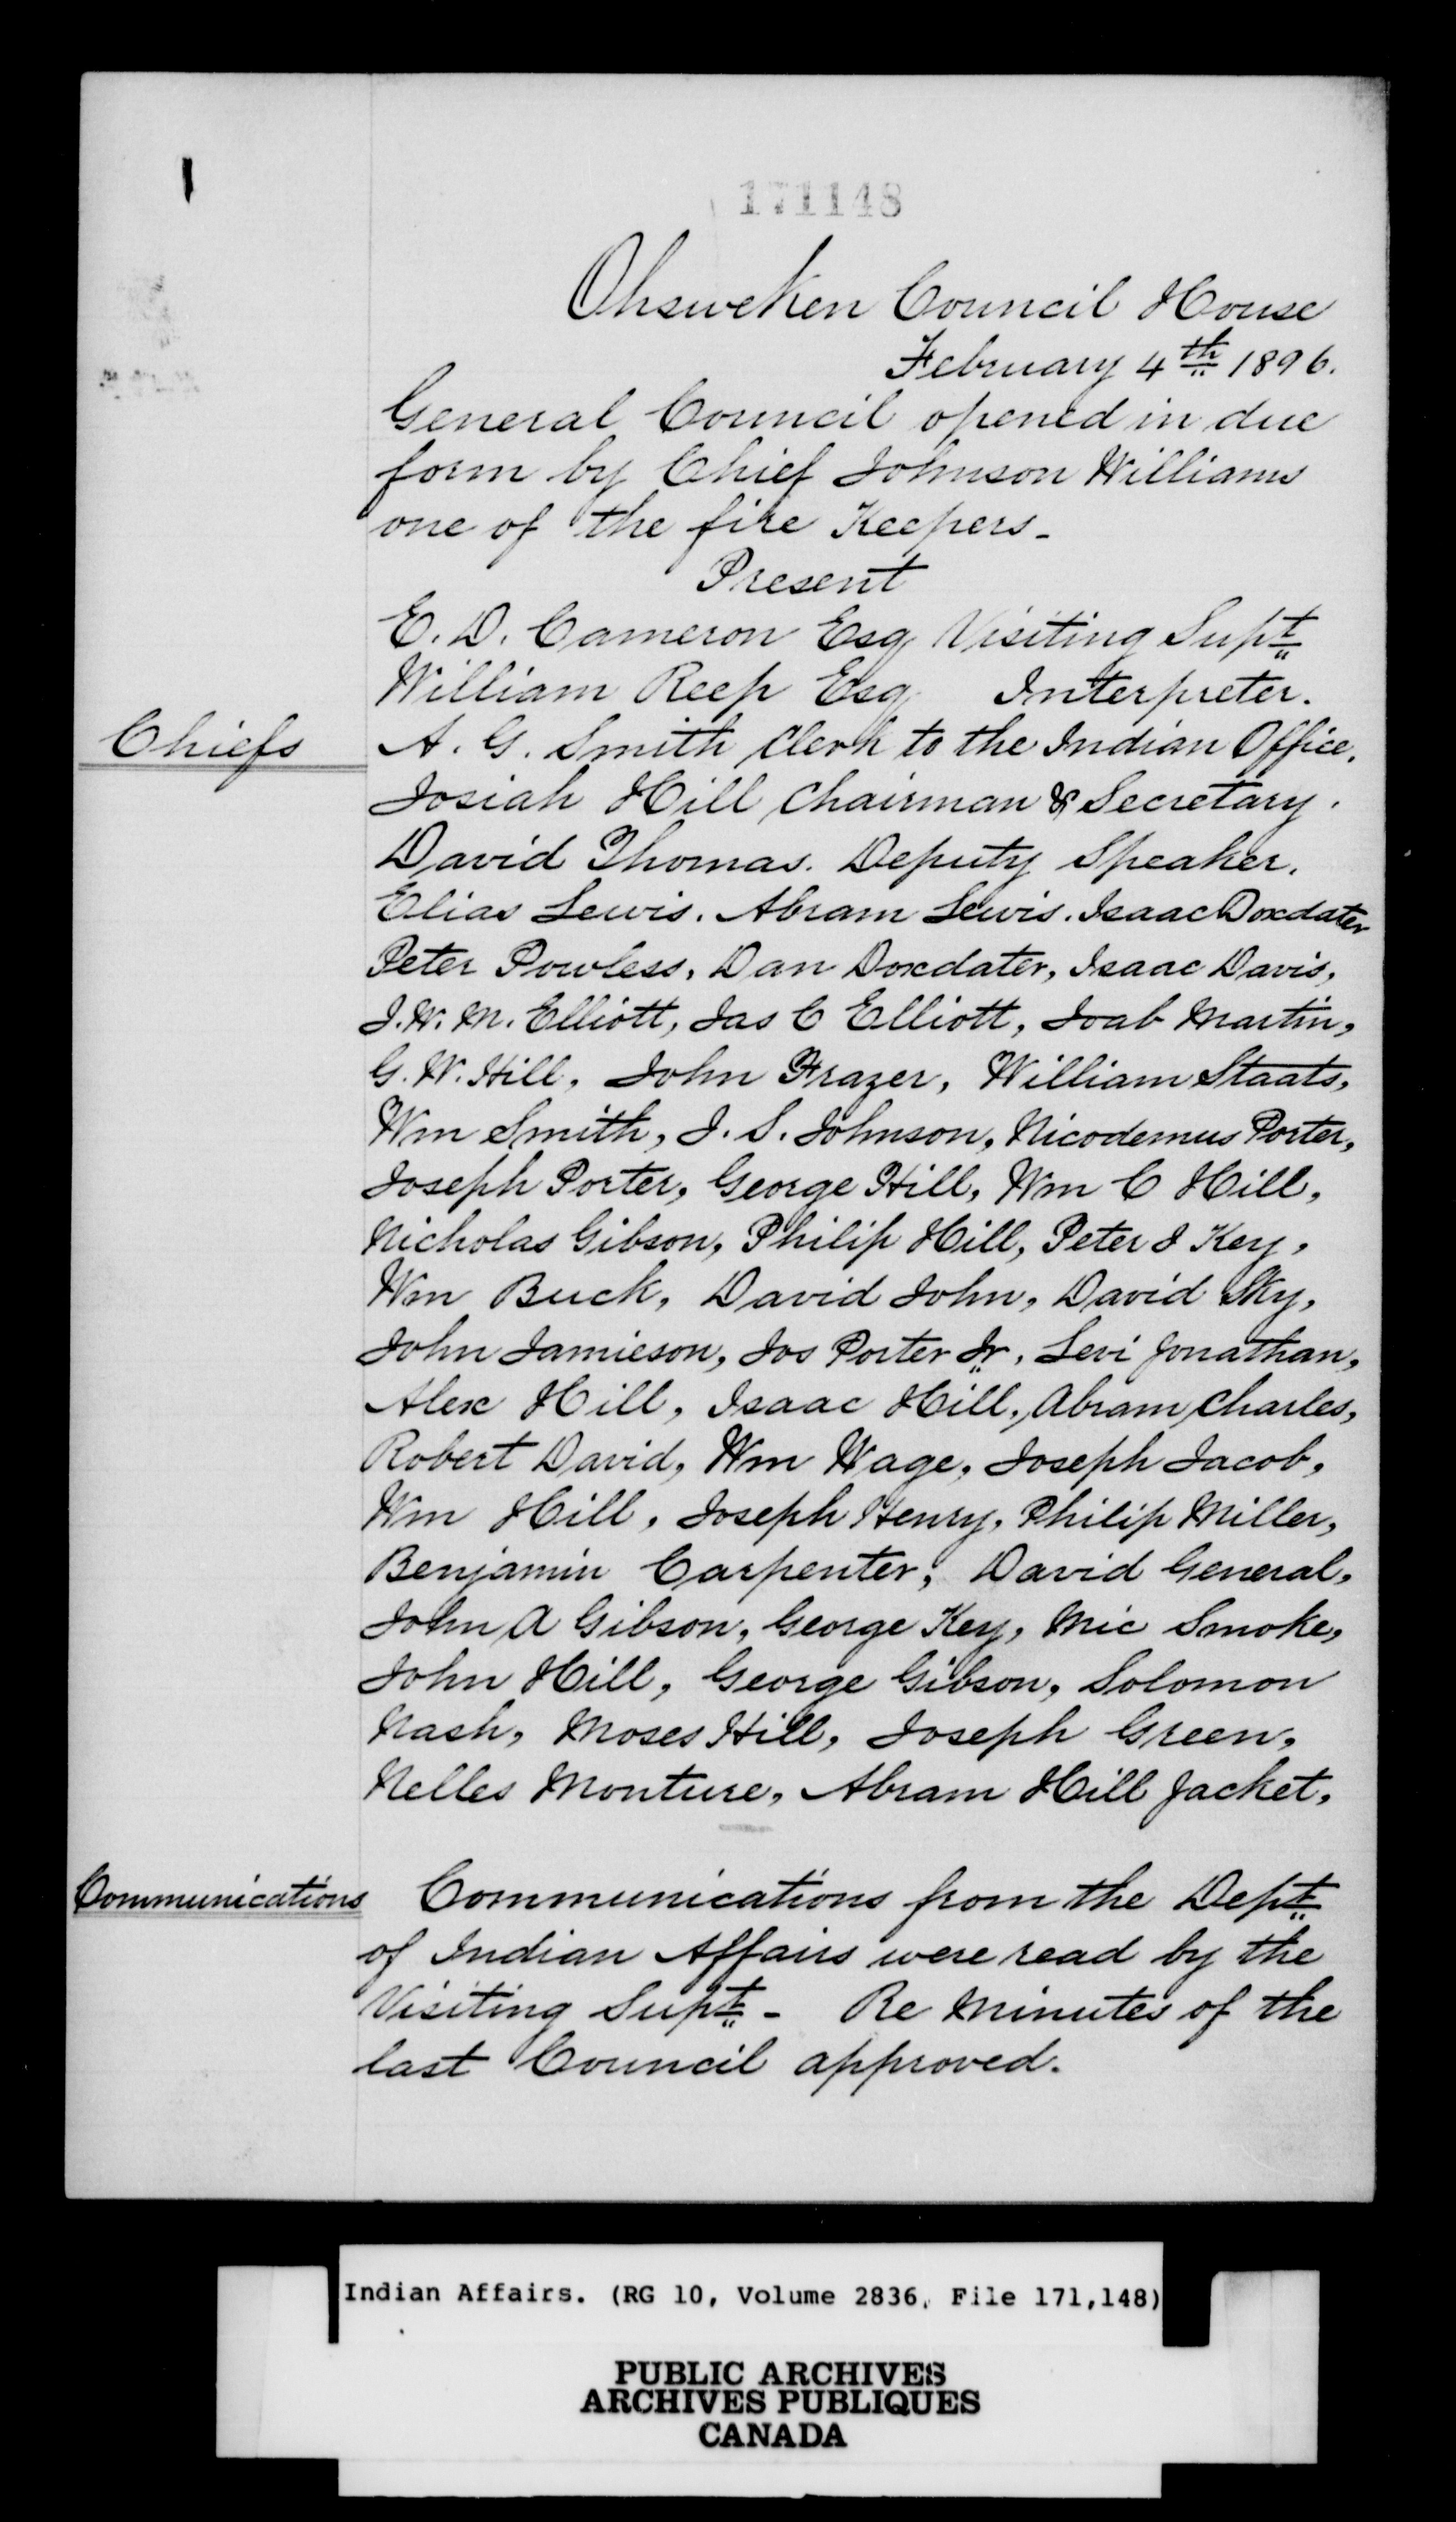 171148
Ohsweken Council House
February 4th 1896.
General Council opened in due
form by Chief Johnson Williams
one of the fire Keepers -
Present
E. D. Cameron Esq Visiting Supt
William Reep Esq Interpreter.
Chiefs
A. G. Smith Clerk to the Indian Office.
Josiah Hill Chairman & Secretary.
David Thomas. Deputy Speaker.
Elias Lewis. Abram Lewis. Isaac Doxdater
Peter Powless, Dan Doxdater, Isaac Davis,
J. W. M. Elliott, Jas C Elliott, Joab Martin,
G. W. Hill, John Frazer, William Staats,
Wm Smith, J. S. Johnson, Nicodemus Porter,
Joseph Porter, George Hill, Wm C Hill,
Nicholas Gibson, Philip Hill, Peter J Key,
Wm Buck, David John, David Sky,
John Jamieson, Jos Porter Jr, Levi Jonathan,
Alex Hill, Isaac Hill, Abram Charles,
Robert David, Wm Wage, Joseph Jacob,
Wm Hill, Joseph Henry, Philip Miller,
Benjamin Carpenter, David General,
John A Gibson, George Key, Mic Smoke,
John Hill, George Gibson, Solomon
Nash, Moses Hill, Joseph Green,
Nelles Monture, Abram Hill Jacket,
Communications
Communications from the Dept
of Indian Affairs were read by the
Visiting Supt - Re Minutes of the
last Council approved.
Indian Affairs. (RG 10, Volume 2836, File 171,148)
PUBLIC ARCHIVES
ARCHIVES PUBLIQUES
CANADA